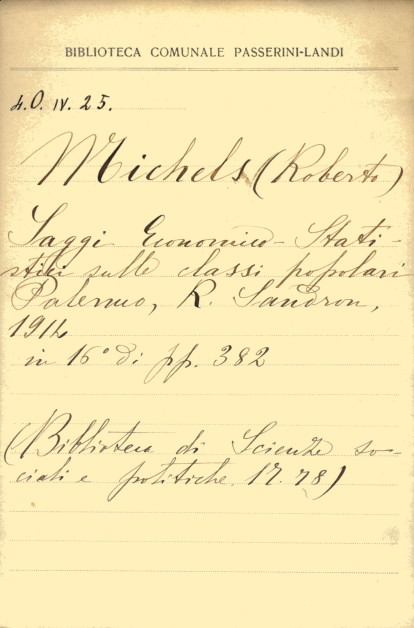 BIBLIOTECA COMUNALE PASSERINI-LANDI
4.O. IV. 25.
Michels (Roberto)
Saggi Economico-Stati-
stici sulle classi popolari
Palermo, R. Sandron,
1914
in 16° di pp. 382
(Biblioteca di Scienze so-
ciali e politiche. 78)